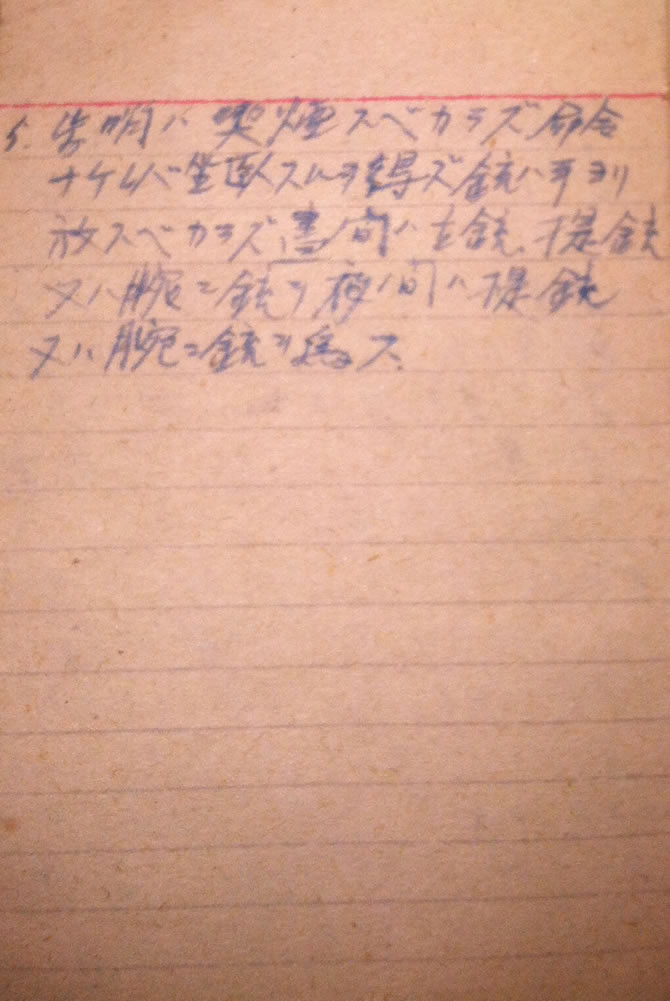 5. 歩哨ハ喫煙スベカラズ命令
ナケレバ坐臥スルヲ得ズ銃ハ手ヨリ
放スベカラズ昼間ハ立銃、提銃
又ハ腕ニ銃ヲ夜間ハ提銃
又ハ腕ニ銃ヲ為ス